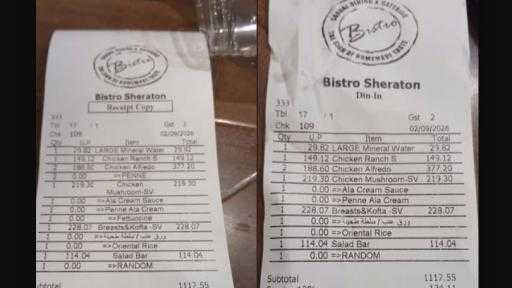 CASUAL DINING & CATERING
Bistro
THE ICON OF HOMEMADE TASTE
Bistro Sheraton
Receipt Copy
333
Tbl 17 / 1 Gst 2
Chk 109 02/09/2026
Qty U.P Item Total
1 29.82 LARGE Mineral Water 29.82
1 149.12 Chicken Ranch S 149.12
2 188.60 Chicken Alfredo 377.20
2 0.00 =>PENNE
1 219.30 Chicken 219.30
Mushroom-SV
1 0.00 =>Ala Cream Sauce
1 0.00 =>Penne Ala Cream
1 0.00 =>Fettuccine
1 228.07 Breasts&Kofta -SV 228.07
1 0.00 =>ورق عنب / سلطة طحينة
1 0.00 =>Oriental Rice
1 114.04 Salad Bar 114.04
1 0.00 =>RANDOM
1117.55
CASUAL DINING & CATERING
Bistro
THE ICON OF HOMEMADE TASTE
Bistro Sheraton
Din-In
333
Tbl 17 / 1 Gst 2
Chk 109 02/09/2026
Qty U.P Item Total
1 29.82 LARGE Mineral Water 29.82
1 149.12 Chicken Ranch S 149.12
2 188.60 Chicken Alfredo 377.20
1 219.30 Chicken Mushroom-SV 219.30
1 0.00 =>Ala Cream Sauce
1 0.00 =>Penne Ala Cream
1 228.07 Breasts&Kofta -SV 228.07
1 0.00 =>ورق عنب / سلطة طحينة
1 0.00 =>Oriental Rice
1 114.04 Salad Bar 114.04
1 0.00 =>RANDOM
Subtotal 1117.55